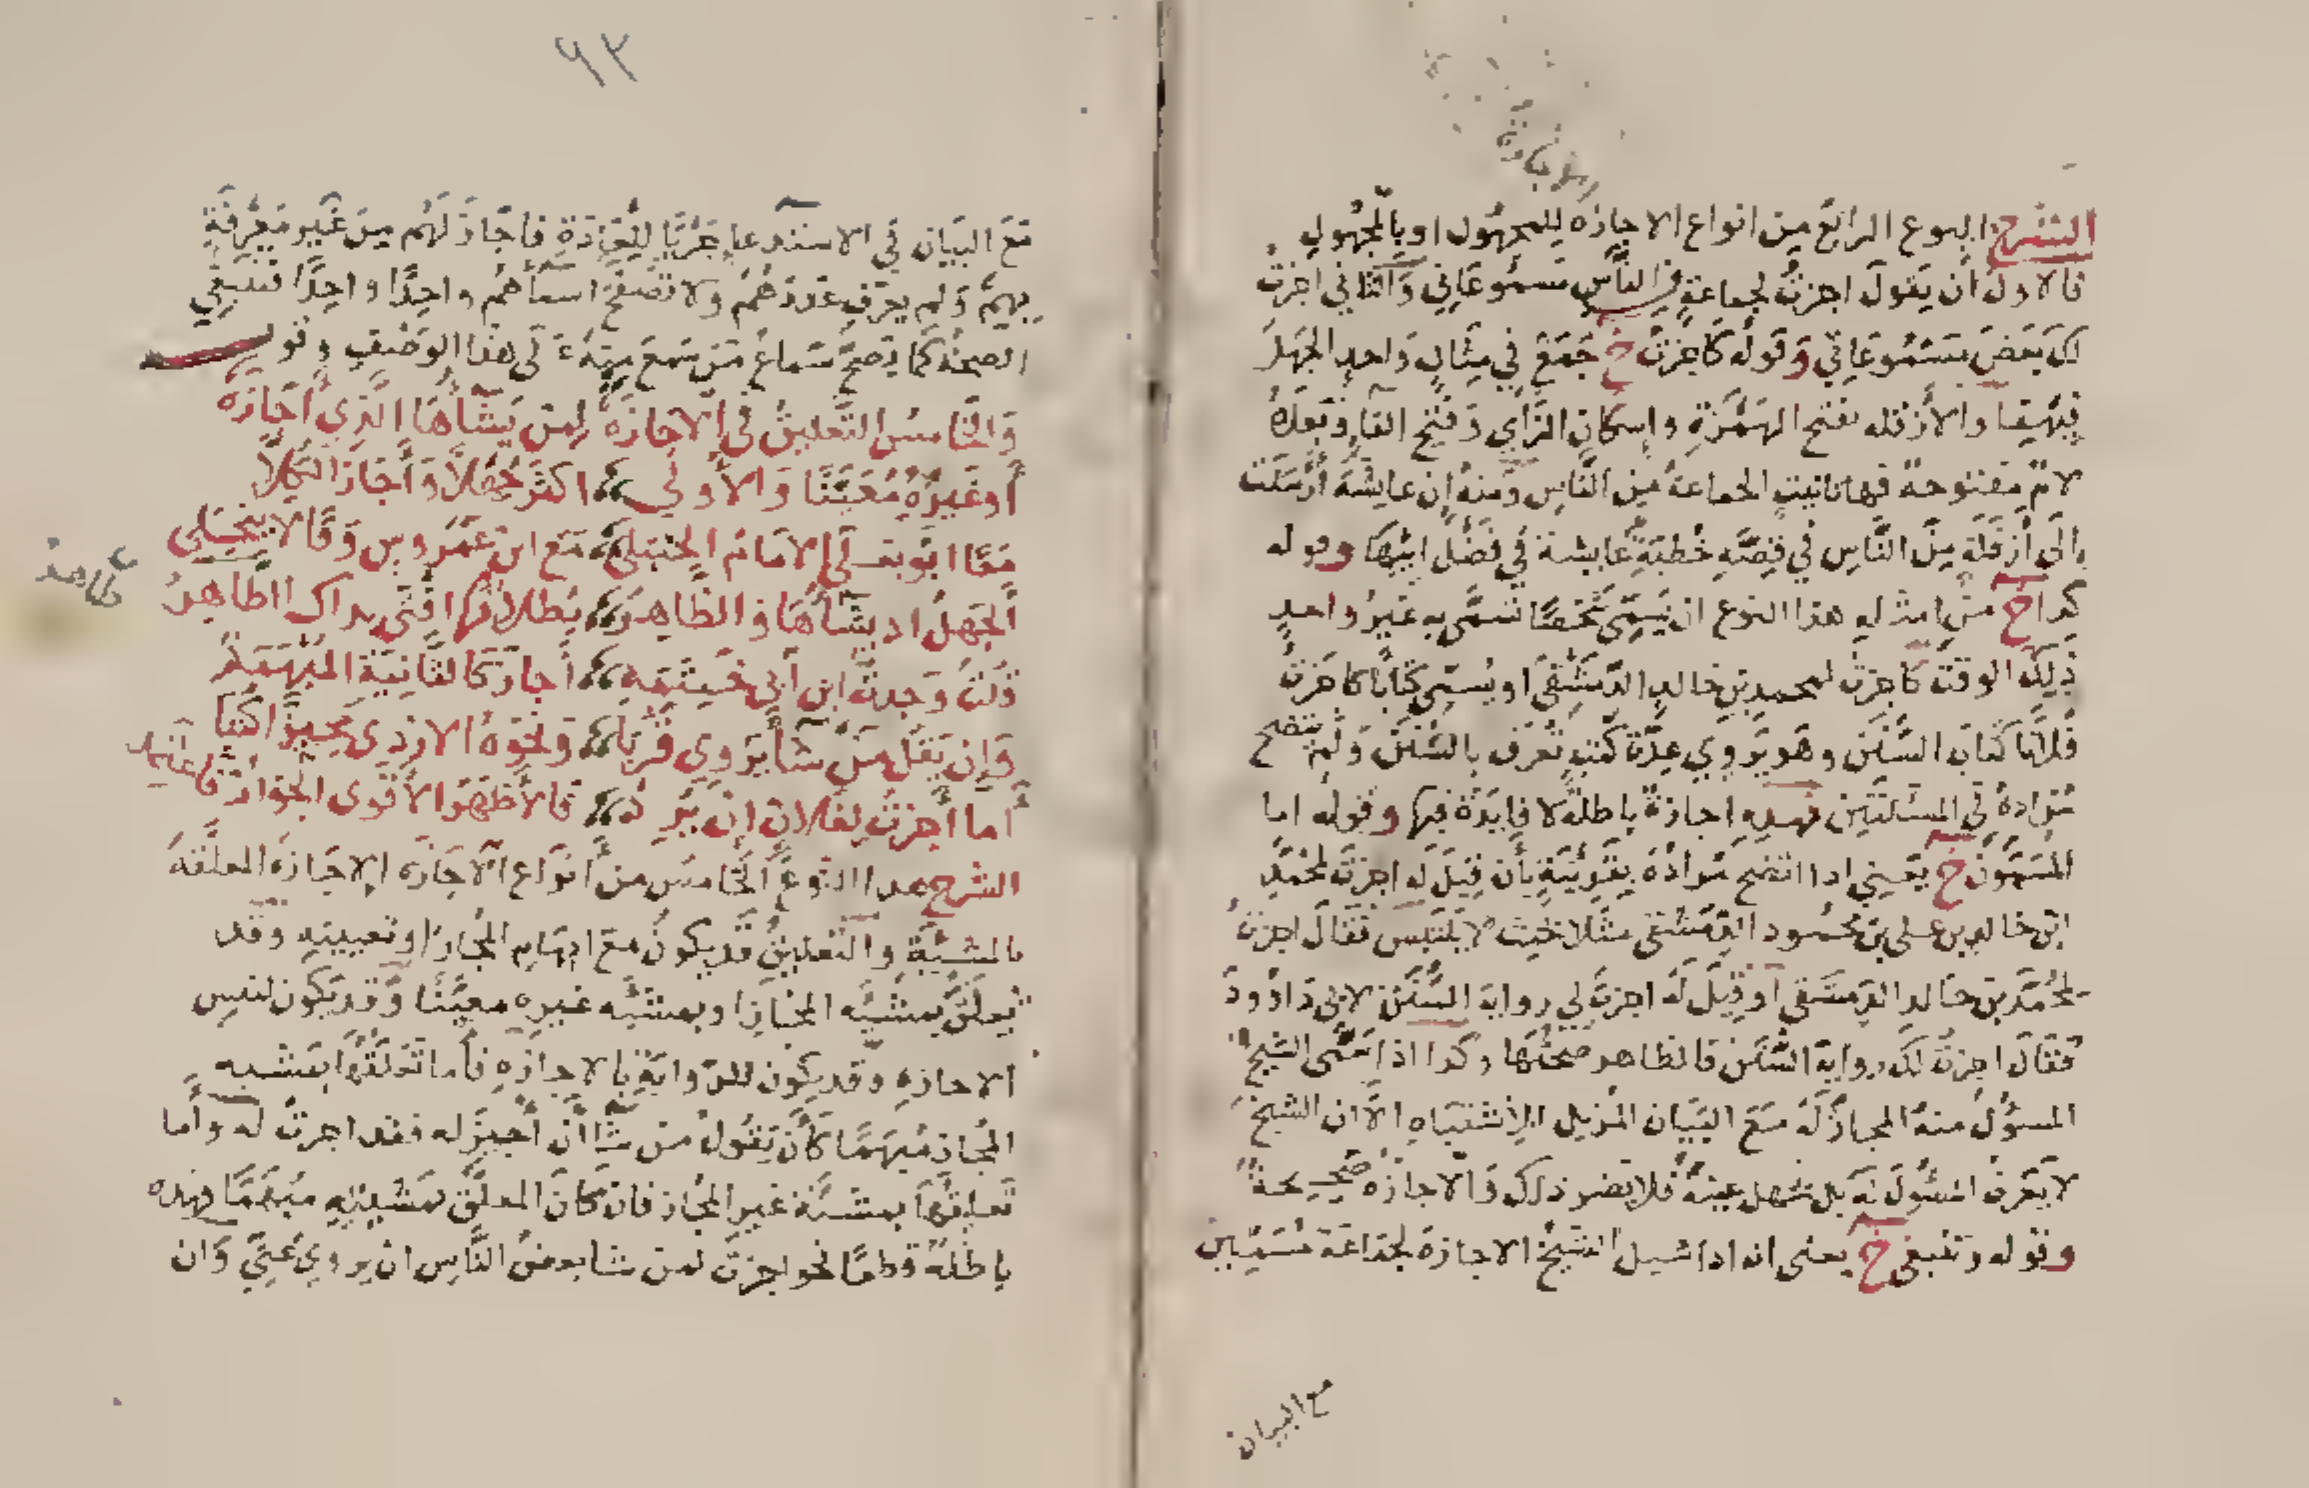 الشرح النوع الرابع من انواع الاجازة للمجهول او بالمجهول
فالاول ان يقول اجزت لجماعة من الناس مسموعاتي والثاني اجزت
لك بعض مسموعاتي وقوله كاجزت خ جمع في مثال واحد الجهل
فيهما والأزفله بفتح الهمزة واسكان الزاي وفتح الفا وبعده
لام مفتوحة فها تانيث الجماعة من الناس ومنه ان عايشة أرسلت
إلى أزفلة من الناس في قصة خطبة عايشة في فضل ابيها وقوله
كذا خ من امثله هذا النوع ان يسمي شخصا تسمى به غير واحد
ذلك الوقت كاجزت لمحمد بن خالد الدمشقي او يسمي كتابا كاجزت
فلانا كتاب السنن وهو يروي عدة كتب تعرف بالسنن ولم يتضح
مراده في المسئلتين فهذه اجازة باطلة لا فايدة فيها وقوله اما
المسمون خ يعني اذا اتضح مراده بقرينة بأن قيل له اجزت لمحمد
ابن خالد بن علي بن محمود الدمشقي مثلا بحيث لا يلتبس فقال اجزت
لمحمد بن خالد الدمشقي او قيل له اجزت لي رواية السنن لابي داوود
فقال اجزت لك رواية السنن فالظاهر صحتها وكذا اذا سمى الشيخ
المسؤل منه المجاز له مع البيان المزيل للاشتباه الا ان الشيخ
لا يعرف المسؤل له بل يجهل عينه فلا يضر ذلك والاجازة صحيحة
وقوله وتنبغي خ يعني انه اذا سيل الشيخ الاجازة لجماعة مسمين
مع البيان
٩٢
مع البيان في الاستدعا جريا للعادة فاجاز لهم من غير معرفة
بهم ولم يعرف عددهم ولا تصفح اسماهم واحدا واحدا فتنبغي
الصحة كما يصح سماع من سمع منه على هذا الوصف وقوله
والخامس التعليق في الاجازة لمن يشاؤها الذي أجازه
أو غيره معينا والأولى اكثر جهلا وأجاز الكلا
معا ابو يعلى الامام الحنبلي مع ابن عمروس وقالا ينجلي
الجهل اذ يشاؤها والظاهر بطلانها افتى بذاك الطاهر
قلت وجدت ابن أبي خيثمه أجاز كالثانية المبهمه
وان يقل من شا يروي قربا ونحوه الازدي مجيزا كتبا
أما أجزت لفلان ان يرد فالأظهر الأقوى الجواز فاعتمد
الشرح هذا النوع الخامس من أنواع الاجازه الاجازة المعلقة
بالمشيئة والتعليق قد يكون مع ابهام المجاز او تعيينه وقد
يعلق بمشية المجاز او بمشية غيره معينا وقد يكون لنفس
الاجازه وقد يكون للرواية بالاجازه فأما تعلقها بمشية
المجاز مبهما كأن يقول من شا أن أجيز له فقد اجزت له وأما
تعليقها بمشية غير المجاز فان كان المعلق بمشيته مبهما فهذه
باطلة قطعا نحو اجزت لمن شا بعض الناس ان يروي عني وان